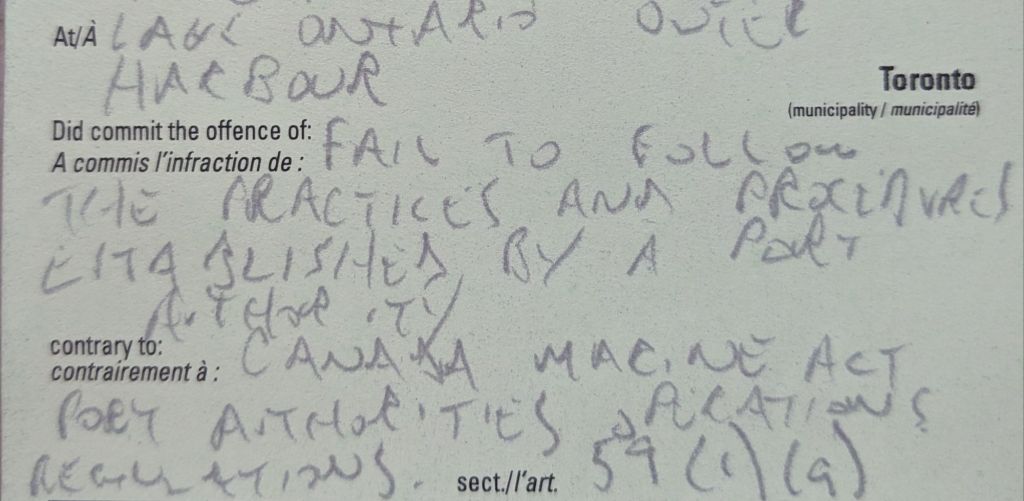 At/À LAKE ONTARIO OUTER
HARBOUR
Toronto
(municipality / municipalité)
Did commit the offence of:
A commis l'infraction de : FAIL TO FOLLOW
THE PRACTICES AND PROCEDURES
ESTABLISHED BY A PORT
AUTHORITY
contrary to:
contrairement à : CANADA MARINE ACT
PORT AUTHORITIES OPERATIONS
REGULATIONS. sect./l'art. 59 (1) (a)